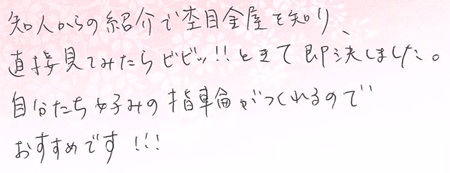 知人からの紹介で杢目金屋を知り、
直接見てみたらビビッ!!ときて即決しました。
自分たち好みの指輪がつくれるので
おすすめです!!!